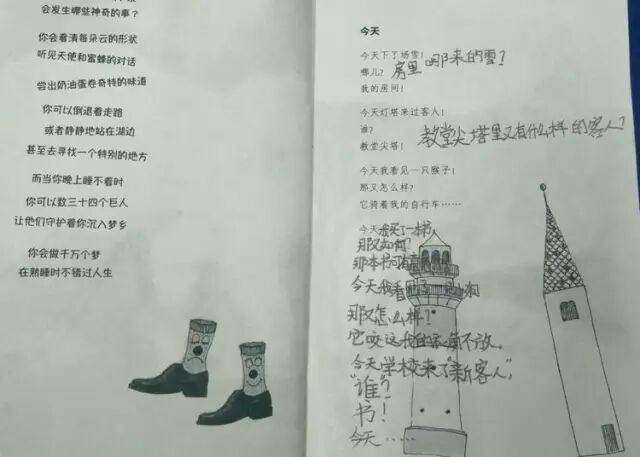 会发生哪些神奇的事？
你会看清每朵云的形状
听见天使和蜜蜂的对话
尝出奶油蛋卷奇特的味道
你可以倒退着走路
或者静静地站在湖边
甚至去寻找一个特别的地方
而当你晚上睡不着时
你可以数三十四个巨人
让他们守护着你沉入梦乡
你会做千万个梦
在熟睡时不错过人生
今天
今天下了场雪！
哪儿？房里哪来的雪？
我的房间！
今天灯塔来过客人！
谁？
教堂尖塔！教堂尖塔里又有什么样的客人？
今天我看见一只猴子！
那又怎么样？
它骑着我的自行车……
今天我买了一本书
那又如何？
那本书可有
今天我看
那又怎么样？
它咬这我的不放。
今天学校来了"新客人"，
"谁"？
书！
今天……